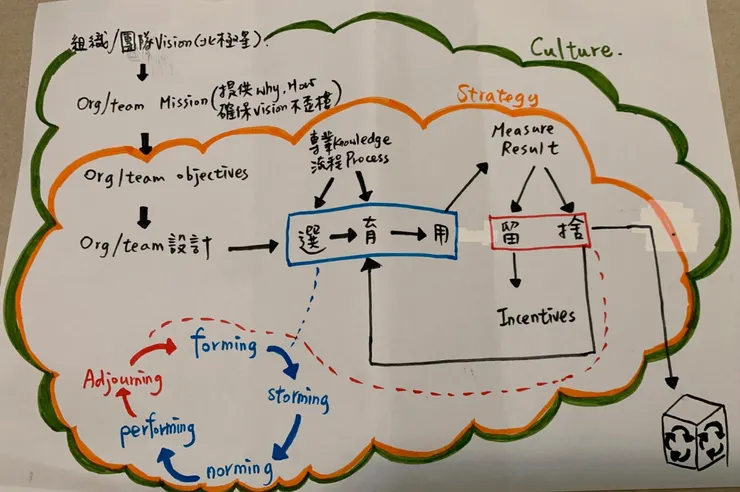 組織/團隊Vision(北極星).
Culture.
Org/team Mission(提供why, How
確保Vision不歪樓)
Strategy
Org/team objectives
專業Knowledge
流程Process
Measure
Result
Org/team 設計
選
育
用
留
捨
Incentives
forming
storming
norming
performing
Adjourning